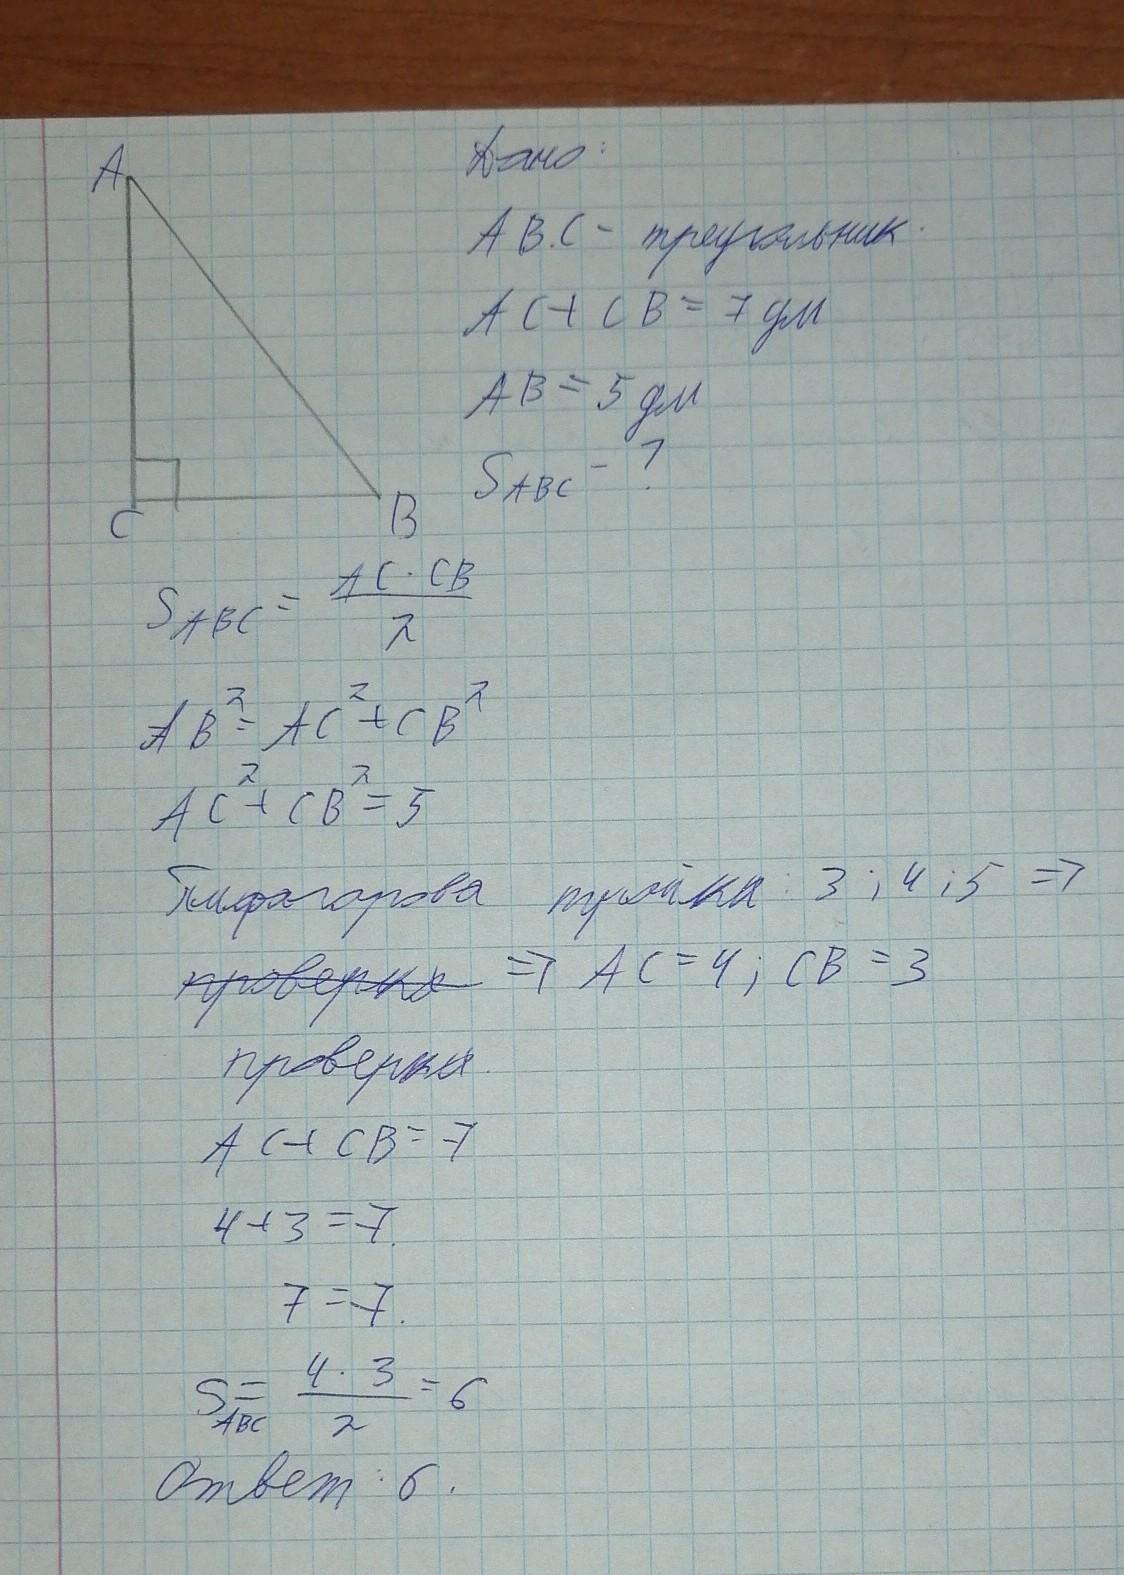 A
C
B
Дано:
ABC - треугольник.
AC + CB = 7 дм
AB = 5 дм
S_ABC - ?
S_ABC = AC · CB / 2
AB² = AC² + CB²
AC² + CB² = 5
Пифагорова тройка: 3; 4; 5 =>
проверка => AC = 4; CB = 3
проверка.
AC + CB = 7
4 + 3 = 7.
7 = 7.
S_ABC = 4 · 3 / 2 = 6
Ответ: 6.